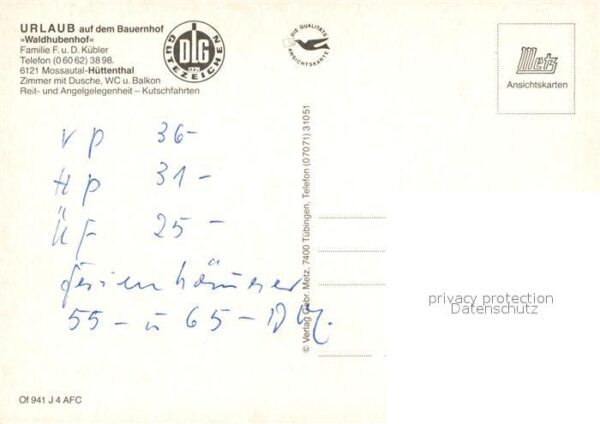 URLAUB auf dem Bauernhof
»Waldhubenhof«
Familie F. u. D. Kübler
Telefon (0 60 62) 38 98.
6121 Mossautal-Hüttenthal
Zimmer mit Dusche, WC u. Balkon
Reit- und Angelgelegenheit – Kutschfahrten
DLG
GÜTEZEICHEN
DIE QUALITÄTS
ANSICHTSKARTE
Metz
Ansichtskarten
VP 36-
HP 31-
ÜF 25-
Ferienhäuser
55- u 65- DM.
© Verlag Gebr. Metz, 7400 Tübingen, Telefon (0 70 71) 3 10 51
privacy protection
Datenschutz
Of 941 J 4 AFC